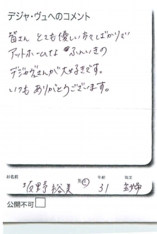 デジャ・ヴュへのコメント
皆さん とても優しい方でばかりで
アットホームな ふんいきの
デジャヴさんが大好きです。
いつも ありがとうございます。
お名前 年齢 地区
坂野 裕美 31
公開不可